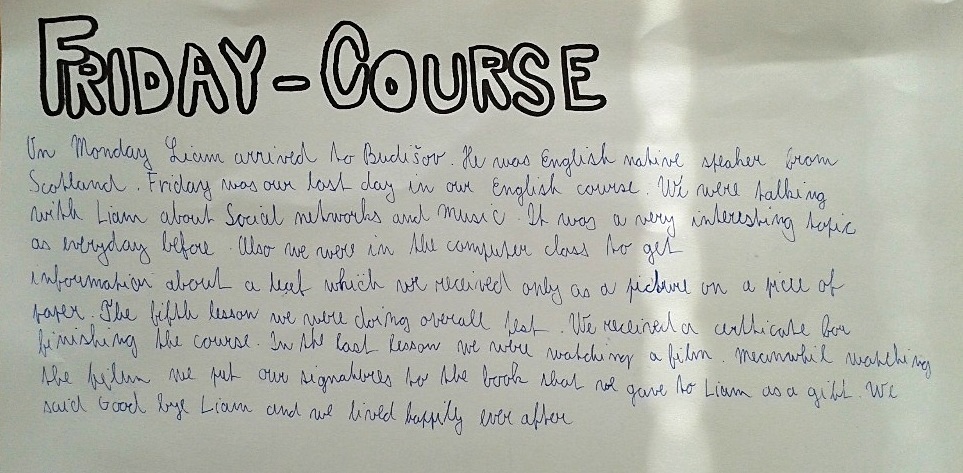 FRIDAY - COURSE
On Monday Liam arrived to Budišov. He was English native speaker from
Scotland. Friday was our last day in our English course. We were talking
with Liam about Social networks and music. It was a very interesting topic
as everyday before. Also we were in the computer class to get
information about a text which we received only as a picture on a piece of
paper. The fifth lesson we were doing overall test. We received a certhicate for
finishing the course. In the last lesson we were watching a film. Meanwhil watching
the film we put our signatures to the book that we gave to Liam as a gift. We
said Good bye Liam and we lived happily ever after